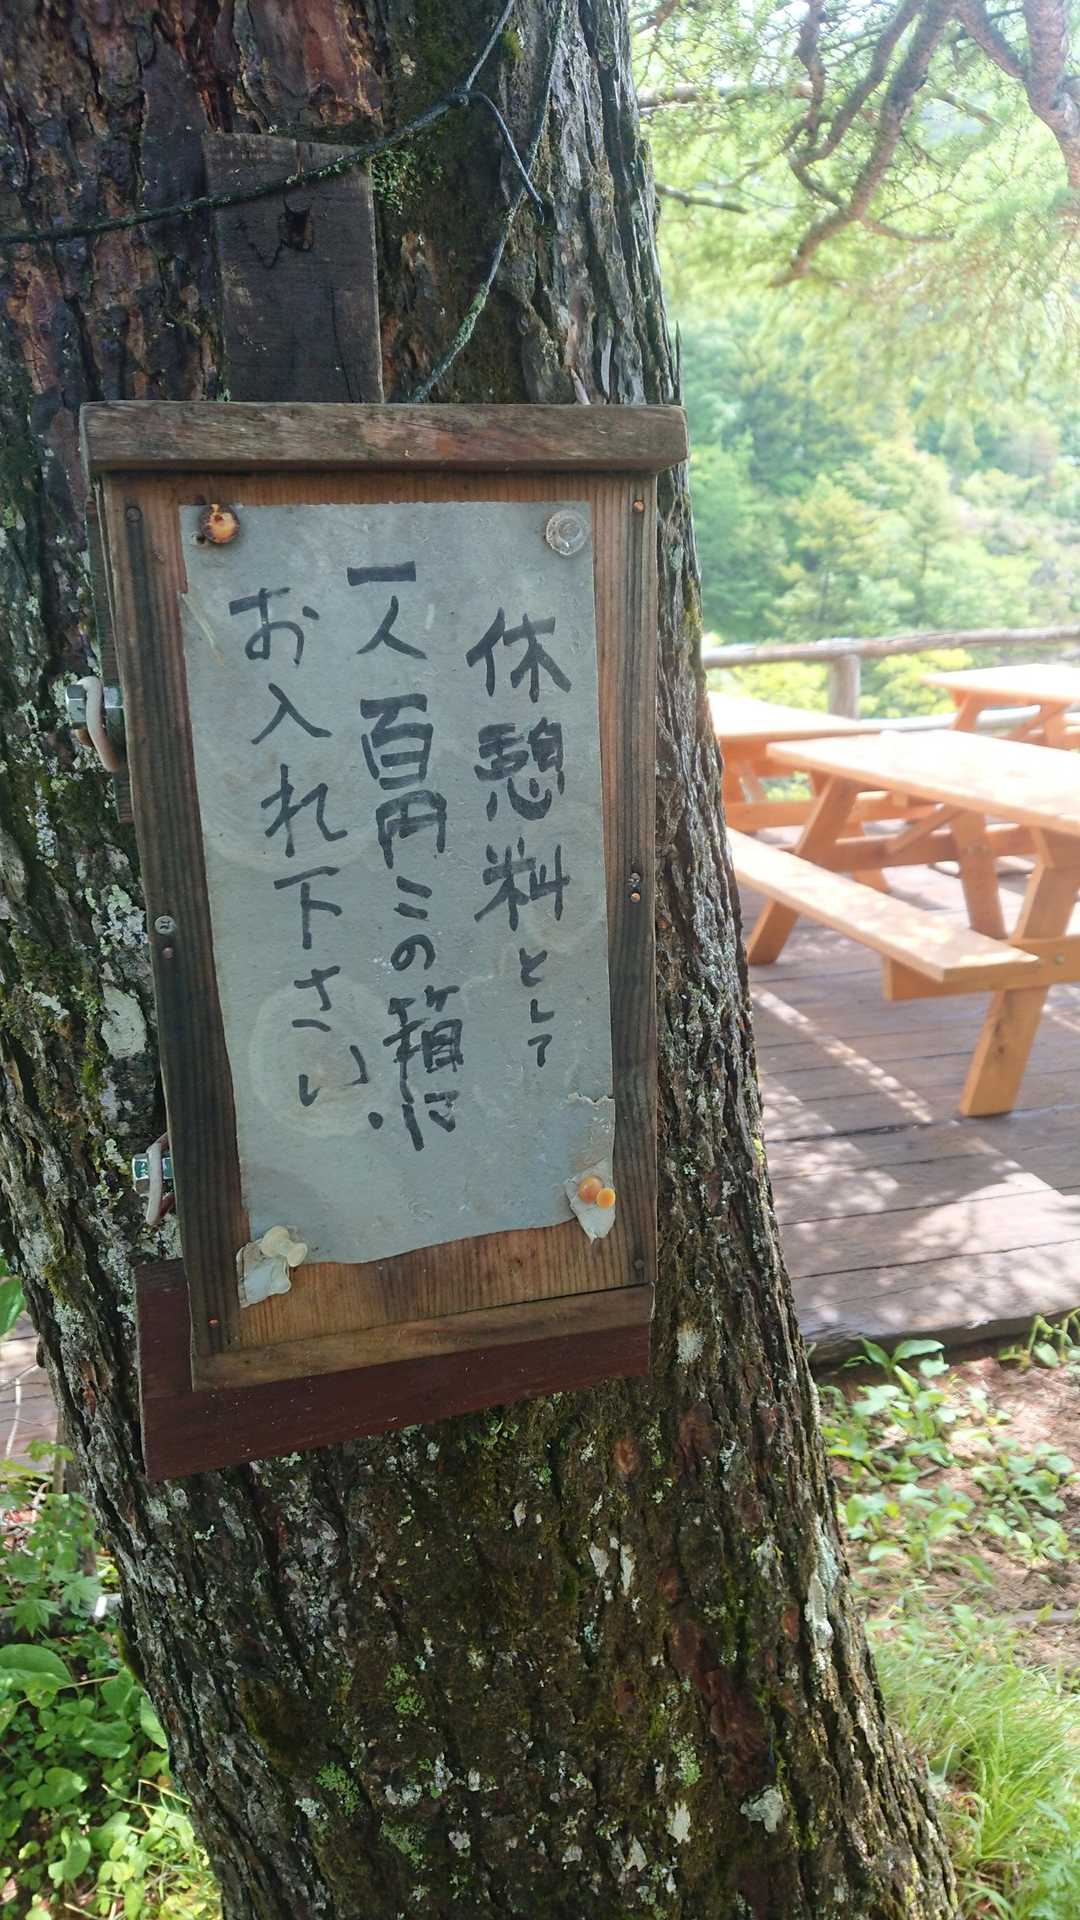 休憩料として
一人百円この箱に
お入れ下さい